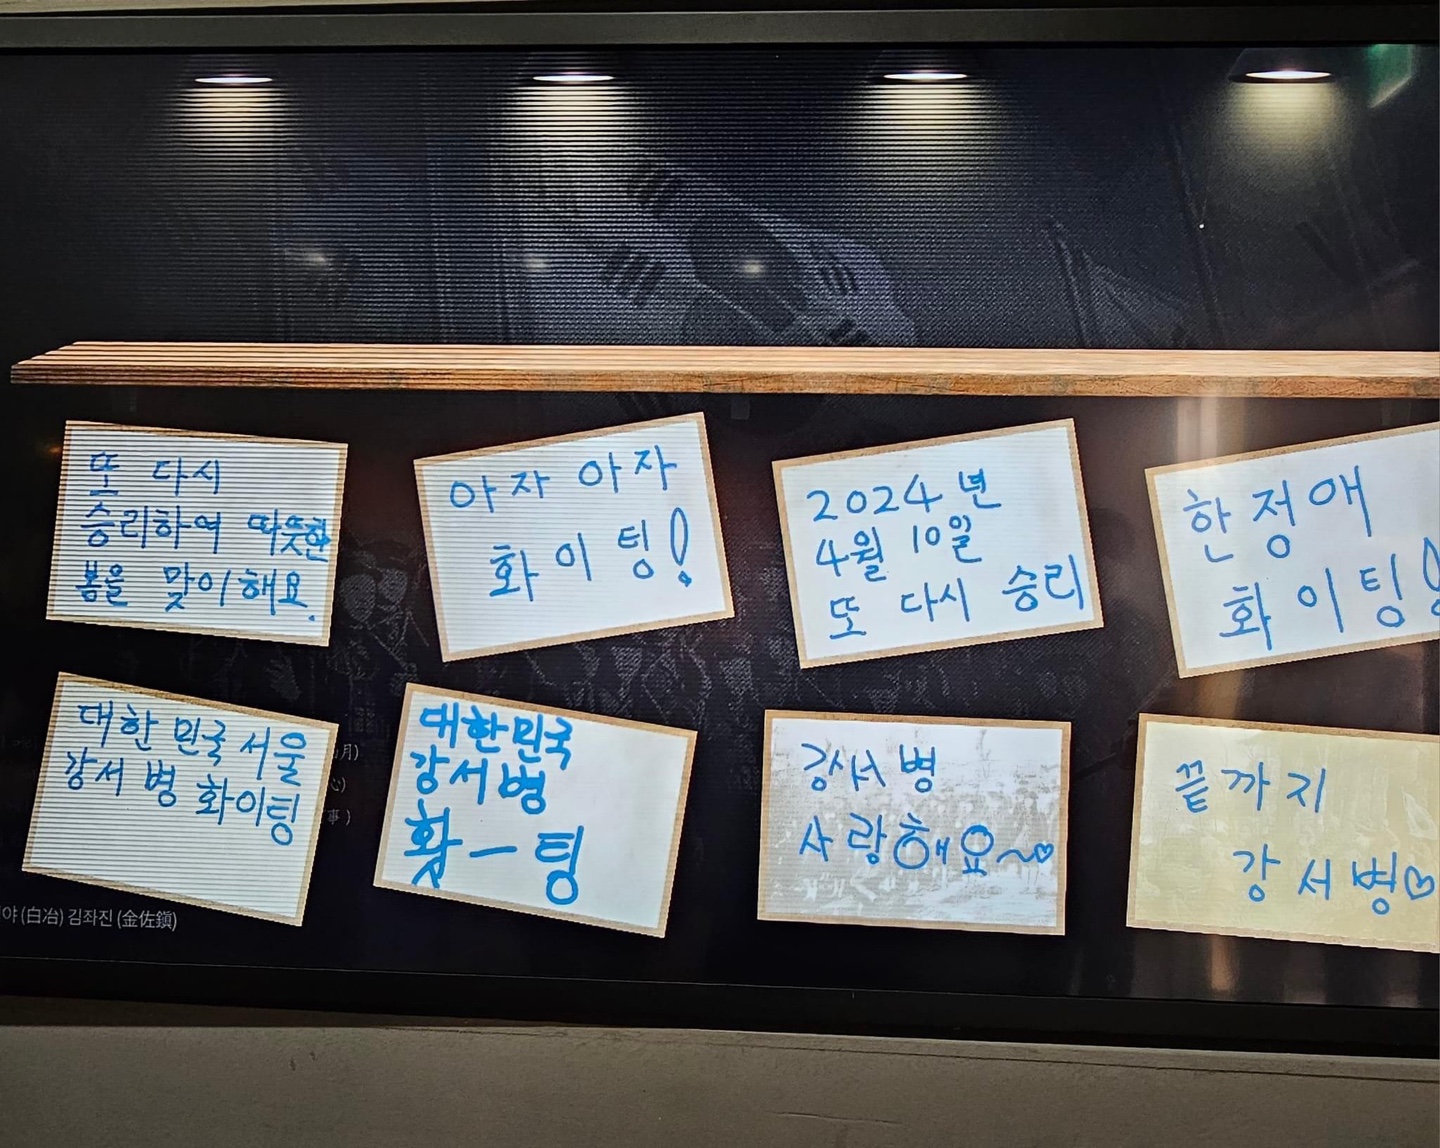 또 다시
승리하여 따뜻한
봄을 맞이해요.
아자 아자
화이팅!
2024년
4월 10일
또 다시 승리
한정애
화이팅!
대한민국 서울
강서병 화이팅
대한민국
강서병
홧ㅡ팅
강서병
사랑해요~♡
끝까지
강서병♡
月)
事)
야 (白冶) 김좌진 (金佐鎭)